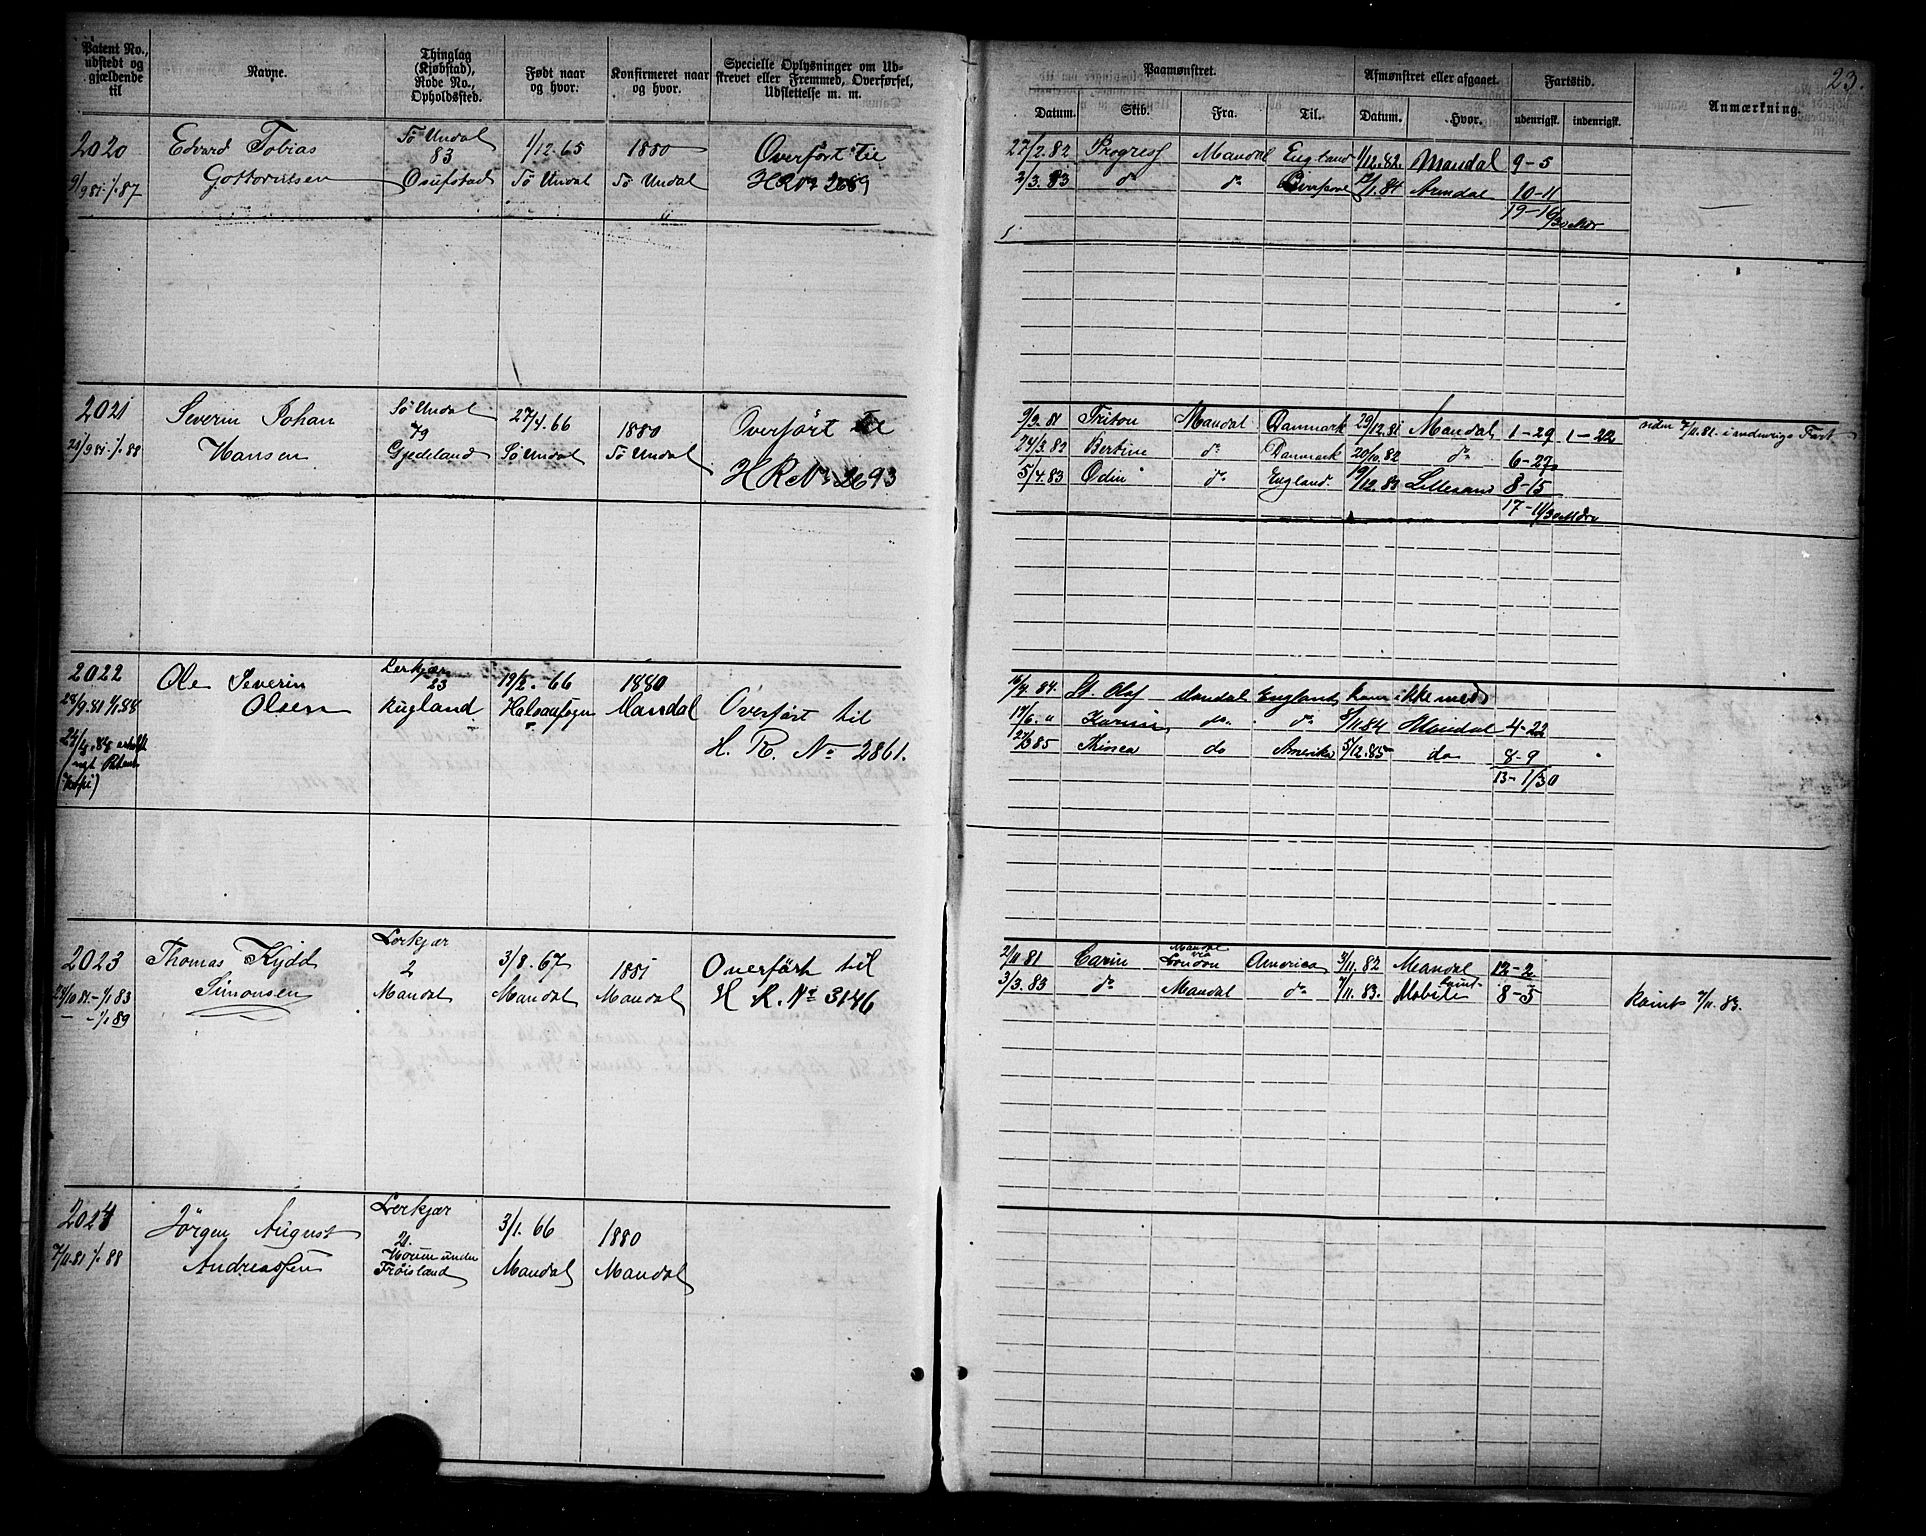 Patent No., udstedt og gjældende til
Navne.
Thinglag (Kjøbstad), Rode No., Opholdssted.
Født naar og hvor.
Konfirmeret naar og hvor.
Specielle Oplysninger om Udskrevet eller Fremmed, Overførsel, Udslettelse m. m.
Paamønstret.
Afmønstret eller afgaaet.
Fartstid.
Anmærkning.
23.
Datum.
Skib.
Fra.
Til.
Datum.
Hvor.
udenrigsk.
indenrigsk.
2020 Edvard Tobias Sö Undal 1/12.65 1880 Overført til
83
9/9 81-1/1 87 Sö Undal Sö Undal H R No 2689
27/2.82 Progress Mandal England 1/12.82. Mandal 9-5
2/3.83 do do 12/1.84 Arendal 10-11
19-16/30 Mdr
2021 Severin Johan Sö Undal 27/4.66 1880 Overført til
79
29/9 81-1/1 88 Hansen Gjedeland Sö Undal Sö Undal H R No 2693
9/9.81 Triton Mandal Danmark 29/12.81 Mandal 1-29 1-22 siden 7/11.81. i indenrigs Fart
24/3.82 Bertine do Danmark 20/10.82 do 6-27
5/4.83 Odin do England. 19/12.83 Lillesand 8-15
17-11/30 Mdr
2022 Ole Severin Lerkjær 19/2.66 1880
23
24/9.81 1/1.88 Olsen Rugland Halsaasogn Mandal Overført til
H. R. No 2861.
16/4.84. St. Olaf Mandal England kom ikke med
17/6. " Karine do. do 8/11.84 Mandal 4-22
27/6 85 do Amerika 5/12.85 do 8-9
13-1/30
2023 Thomas Kydd Lerkjær 3/8.67 1881 Overført til
2
29/10 81-1/1 83 Simonsen Mandal Mandal Mandal H. R. No 3146
- -1/1 89
2/11 81 Carin Mandal via London America 3/11.82 Mandal 12-2
3/3.83 do Mandal do 7/11.83. Mobile 8-5 Rømt 7/11.83.
2024 Jörgen August Lerkjær 3/1.66 1880
21.
7/11.81 1/1 88 Andreassen under Fröisland Mandal Mandal